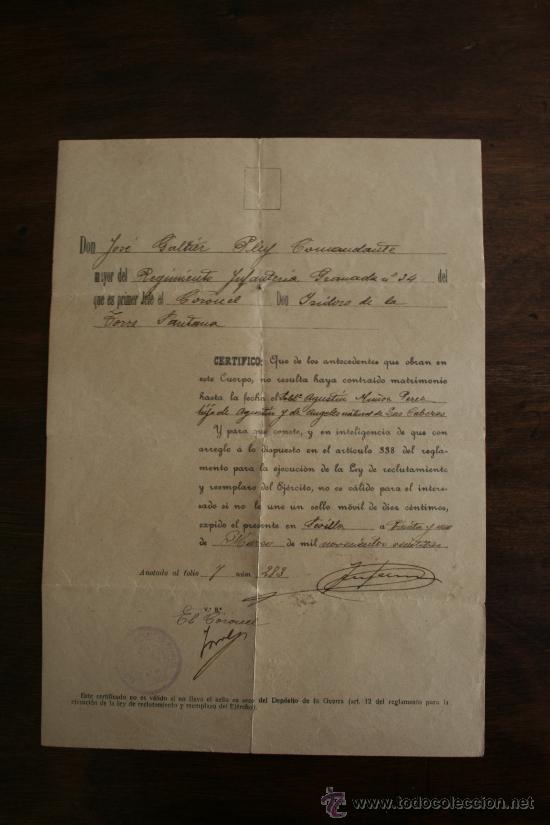 Don José Galtier Pley Comandante
mayor del Regimiento Infantería Granada nº 34 del
que es primer Jefe el Coronel Don Isidoro de la
Torre Santana
CERTIFICO: Que de los antecedentes que obran en
este Cuerpo, no resulta haya contraído matrimonio
hasta la fecha el Sold.º Agustín Muñoz Perez
hijo de Agustín y de Angeles natural de Las Cabezas
Y para que conste, y en inteligencia de que con
arreglo á lo dispuesto en el artículo 338 del regla-
mento para la ejecución de la Ley de reclutamiento
y reemplazo del Ejército, no es válido para el intere-
sado si no le une un sello móvil de diez céntimos,
expido el presente en Sevilla a Treinta y uno
de Marzo de mil novecientos veintitres
Anotado al folio 7 núm. 283
V.º B.º
El Coronel
Este certificado no es válido si no lleva el sello en seco del Depósito de la Guerra (art. 12 del reglamento para la
ejecución de la ley de reclutamiento y reemplazo del Ejército).
todocoleccion
http://www.todocoleccion.net